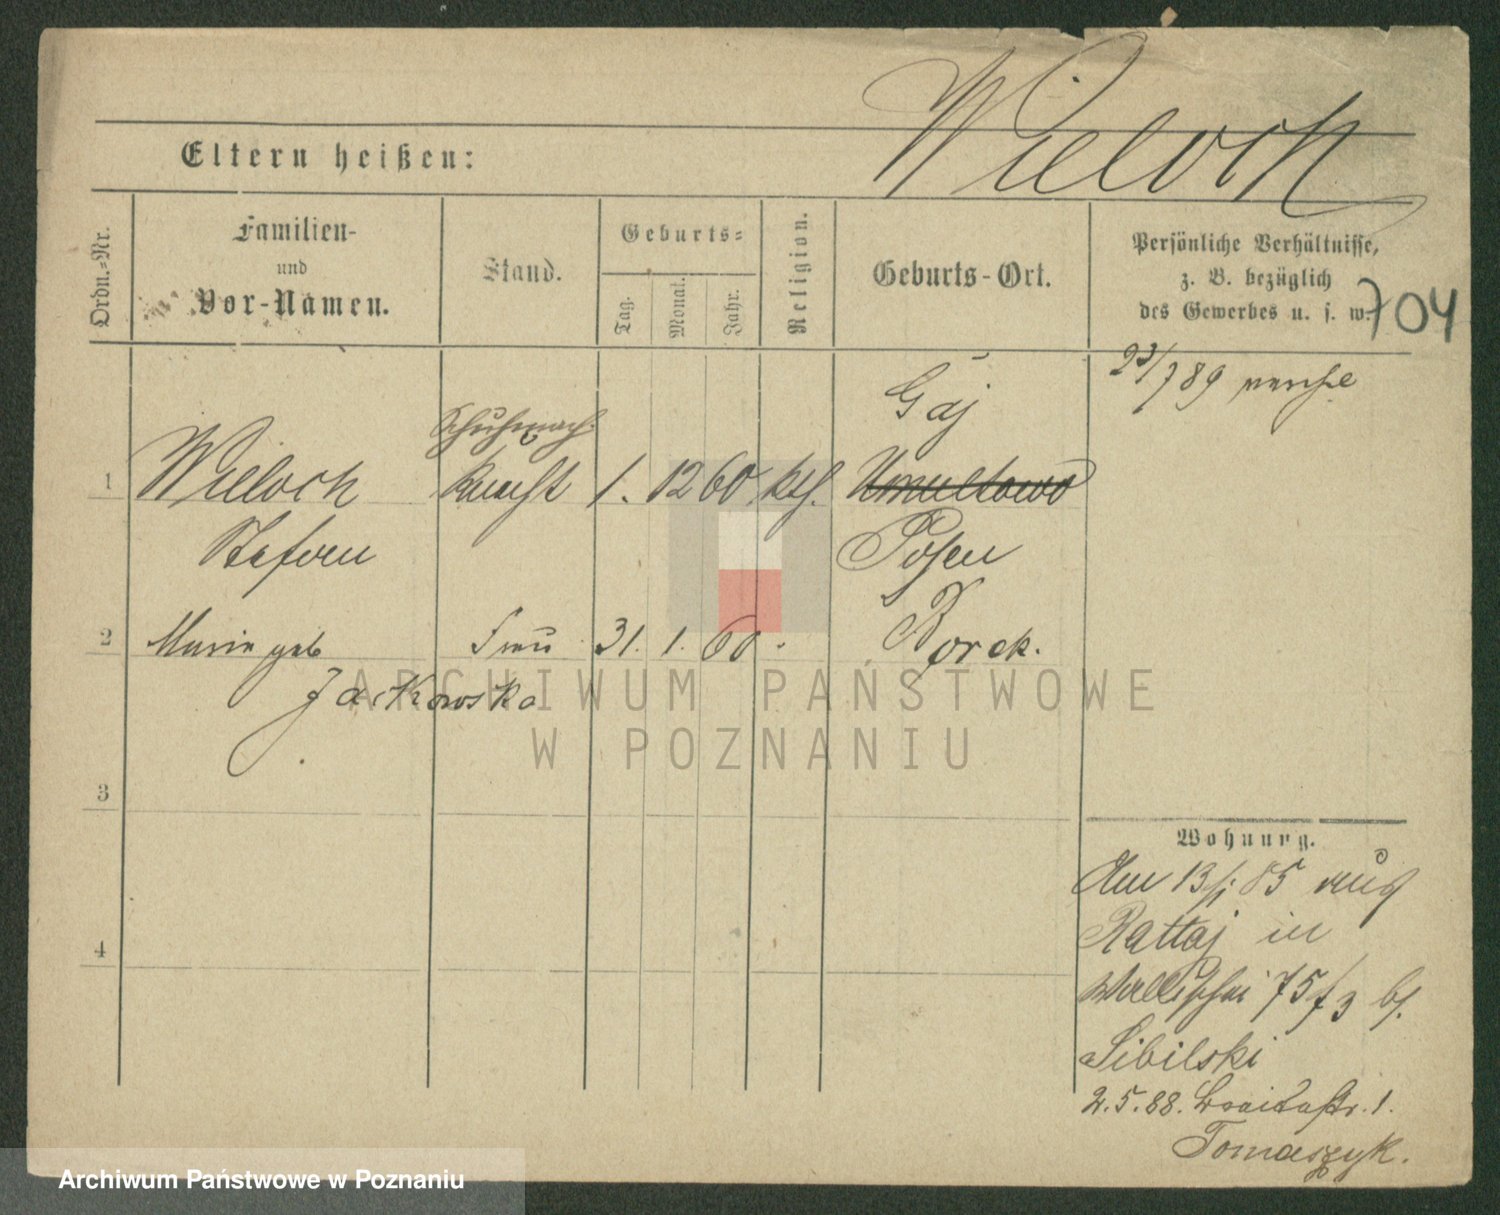 Wieloch
Eltern heißen:
Ordn.-Nr.
Familien-
und
Vor-Namen.
Stand.
Geburts-
Tag.
Monat.
Jahr.
Religion.
Geburts-Ort.
Persönliche Verhältnisse,
z. B. bezüglich
des Gewerbes u. s. w.
704
23/7 89
Gaj
Schuhmach.
1 Wieloch Knecht 1. 12 60 kth. Umultowo
Stefan Posen
2 Marie geb Frau 31. 1. 60 Borek.
Jackowska
ARCHIWUM PAŃSTWOWE
W POZNANIU
3
Wohnung.
Am 13/1 85 aus
4 Rattaj in
Wallischei 75/73 bei
Sibilski
2.5.88. Breitestr. 1.
Tomaszyk.
Archiwum Państwowe w Poznaniu